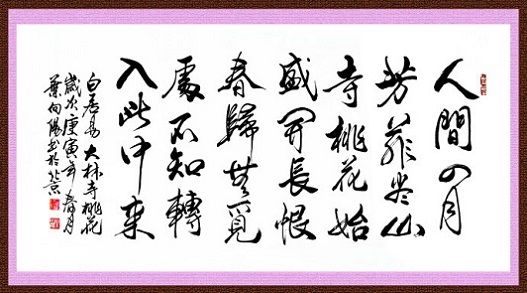 人間四月
芳菲尽山
寺桃花始
盛開長恨
春歸無覓
處不知轉
入此中來
白居易大林寺桃花
歲次庚寅年春月
葉向陽书於北京